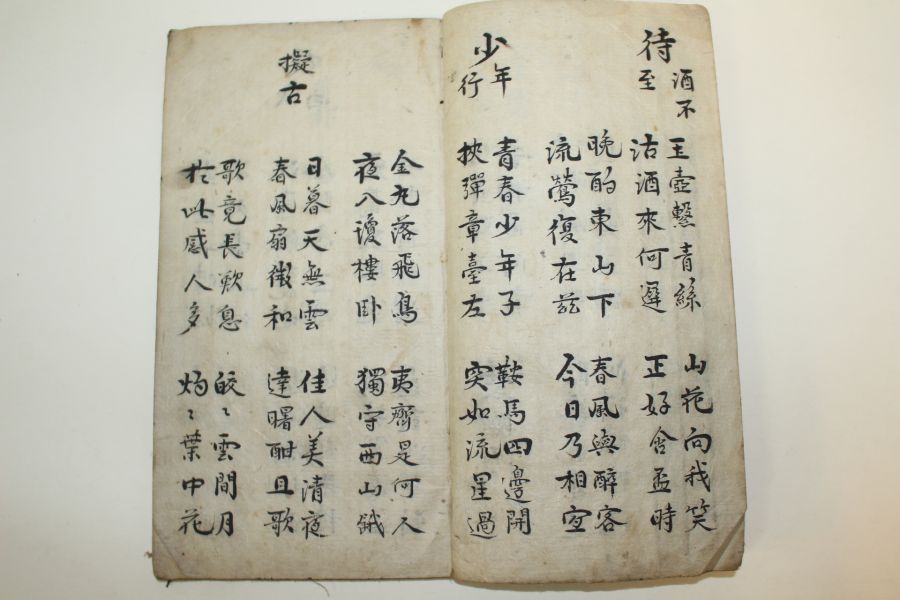 待酒不至
王壺繫青絲
沽酒來何遲
山花向我笑
正好含盃時
晚酌東山下
流鶯復在玆
春風與醉客
今日乃相宜
少年行
青春少年子
挾彈章臺左
鞍馬四邊開
突如流星過
金丸落飛鳥
夜入瓊樓卧
夷齊是何人
獨守西山餓
擬古
日暮天無雲
春風扇微和
佳人美清夜
達曙酣且歌
歌竟長歎息
扵此感人多
皎〻雲間月
灼〻葉中花